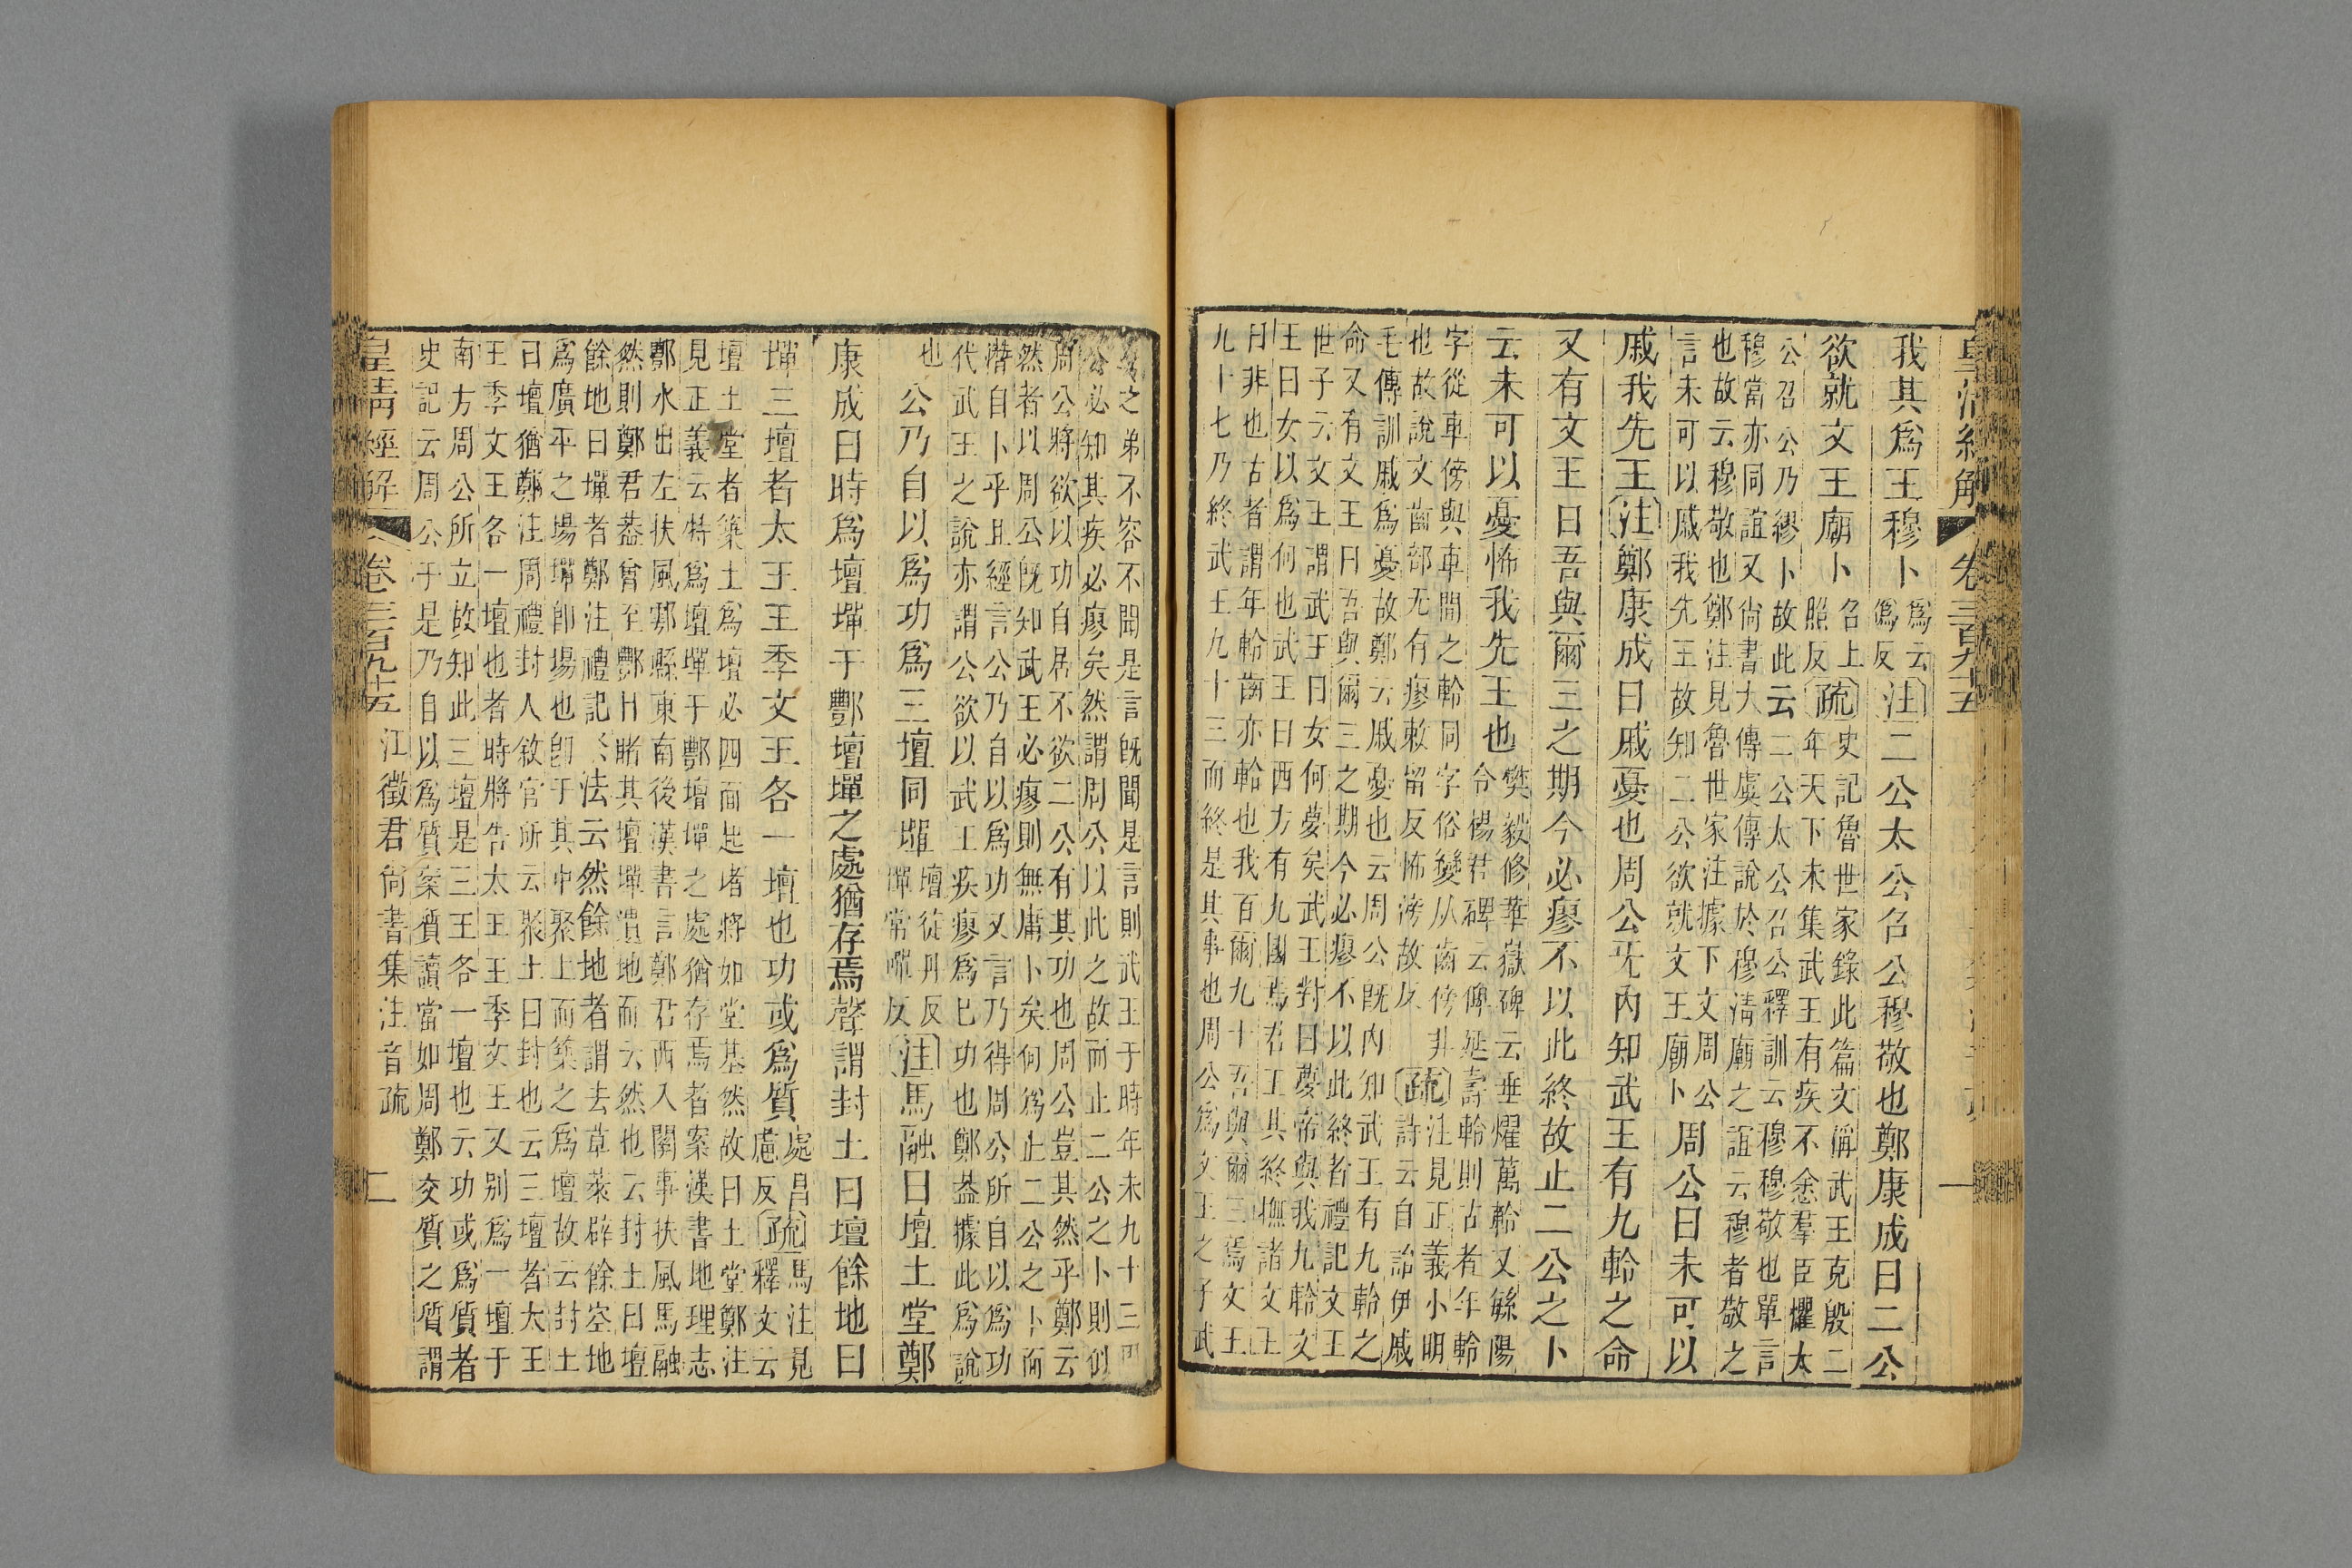 皇清經解 卷三百九十五 一
我其爲王穆卜 爲云
偽反 注 二公太公召公穆敬也鄭康成曰二公
欲就文王廟卜 召上
照反 疏 史記魯世家錄此篇文偁武王克殷二
年天下未集武王有疾不悆羣臣懼太
公召公乃繆卜故此云二公太公召公釋訓云穆穆敬也單言
穆當亦同誼又尙書大傳虞傳說於穆淸廟之誼云穆者敬之
也故云穆敬也鄭注見魯世家注據下文周公
言未可以戚我先王故知二公欲就文王廟卜 周公曰未可以
戚我先王 注 鄭康成曰戚憂也周公旡內知武王有九軨之命
又有文王曰吾與爾三之期今必瘳不以此終故止二公之卜
云未可以憂怖我先王也 樊毅修華嶽碑云垂燿萬軨又緐陽
令楊君碑云俾延壽軨則古者年軨
字從車傍與車閒之軨同字俗變从齒傍非
也故說文齒部无有瘳敕留反怖滂故反 疏 注見正義小明
詩云自詒伊戚
毛傳訓戚爲憂故鄭云戚憂也云周公旣內知武王有九軨之
命又有文王曰吾與爾三之期今必瘳不以此終者禮記文王
世子云文王謂武王曰女何夢矣武王對曰夢帝與我九軨文
王曰女以爲何也武王曰西方有九國焉君王其終撫諸文王
曰非也古者謂年軨齒亦軨也我百爾九十吾與爾三焉文王
九十七乃終武王九十三而終是其事也周公爲文王之子武
王之弟不容不聞是言旣聞是言則武王于時年未九十三
公必知其疾必瘳矣然謂周公以此之故而止二公之卜則似
周公將欲以功自居不欲二公有其功也周公豈其然乎鄭云
然者以周公旣知武王必瘳則無庸卜矣何爲止二公之卜而
僭自卜乎且經言公乃自以爲功又言乃得周公所自以爲功
代武王之說亦謂公欲以武王疾瘳爲己功也鄭葢據此爲說
也 公乃自以爲功爲三壇同墠 壇徒丹反
墠常墠反 注 馬融曰壇土堂鄭
康成曰時爲壇墠于酆壇墠之處猶存焉聲謂封土曰壇餘地曰
墠三壇者太王王季文王各一壇也功或爲質 處昌
慮反 疏 馬注見
釋文云
壇土堂者築土爲壇必四面起堵將如堂基然故曰土堂鄭注
見正義云特爲壇墠于酆壇墠之處猶存焉者案漢書地理志
酆水出左扶風鄠縣東南後漢書言鄭君西入關事扶風馬融
然則鄭君葢嘗至酆目睹其壇墠遺地而云然也云封土曰壇
餘地曰墠者鄭注禮記祭法云然餘地者謂去草萊辟餘空地
爲廣平之場墠卽場也卽于其中聚土而築之爲壇故云封土
曰壇猶鄭注周禮封人敘官所云聚土曰封也云三壇者大王
王季文王各一壇也者時將告太王王季文王又别爲一壇于
南方周公所立故知此三壇是三王各一壇也云功或爲質者
史記云周公于是乃自以爲質案質讀當如周鄭交質之質謂
皇清經解 卷三百九十五 江徵君尙書集注音疏 二